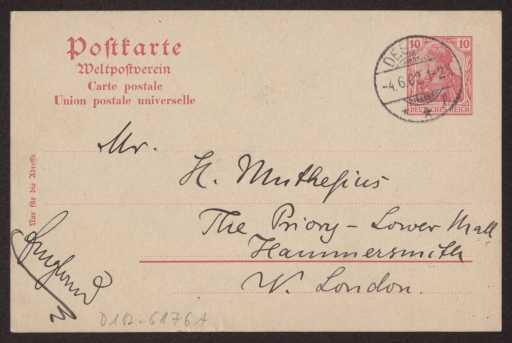 Postkarte
Weltpostverein
Carte postale
Union postale universelle
10 10
DEUTSCHES REICH
-4.6.02. 1-2
Nur für die Adresse
Mr. H. Muthesius
The Priory - Lower Mall
Hammersmith
W. London.
England
D102-6176A